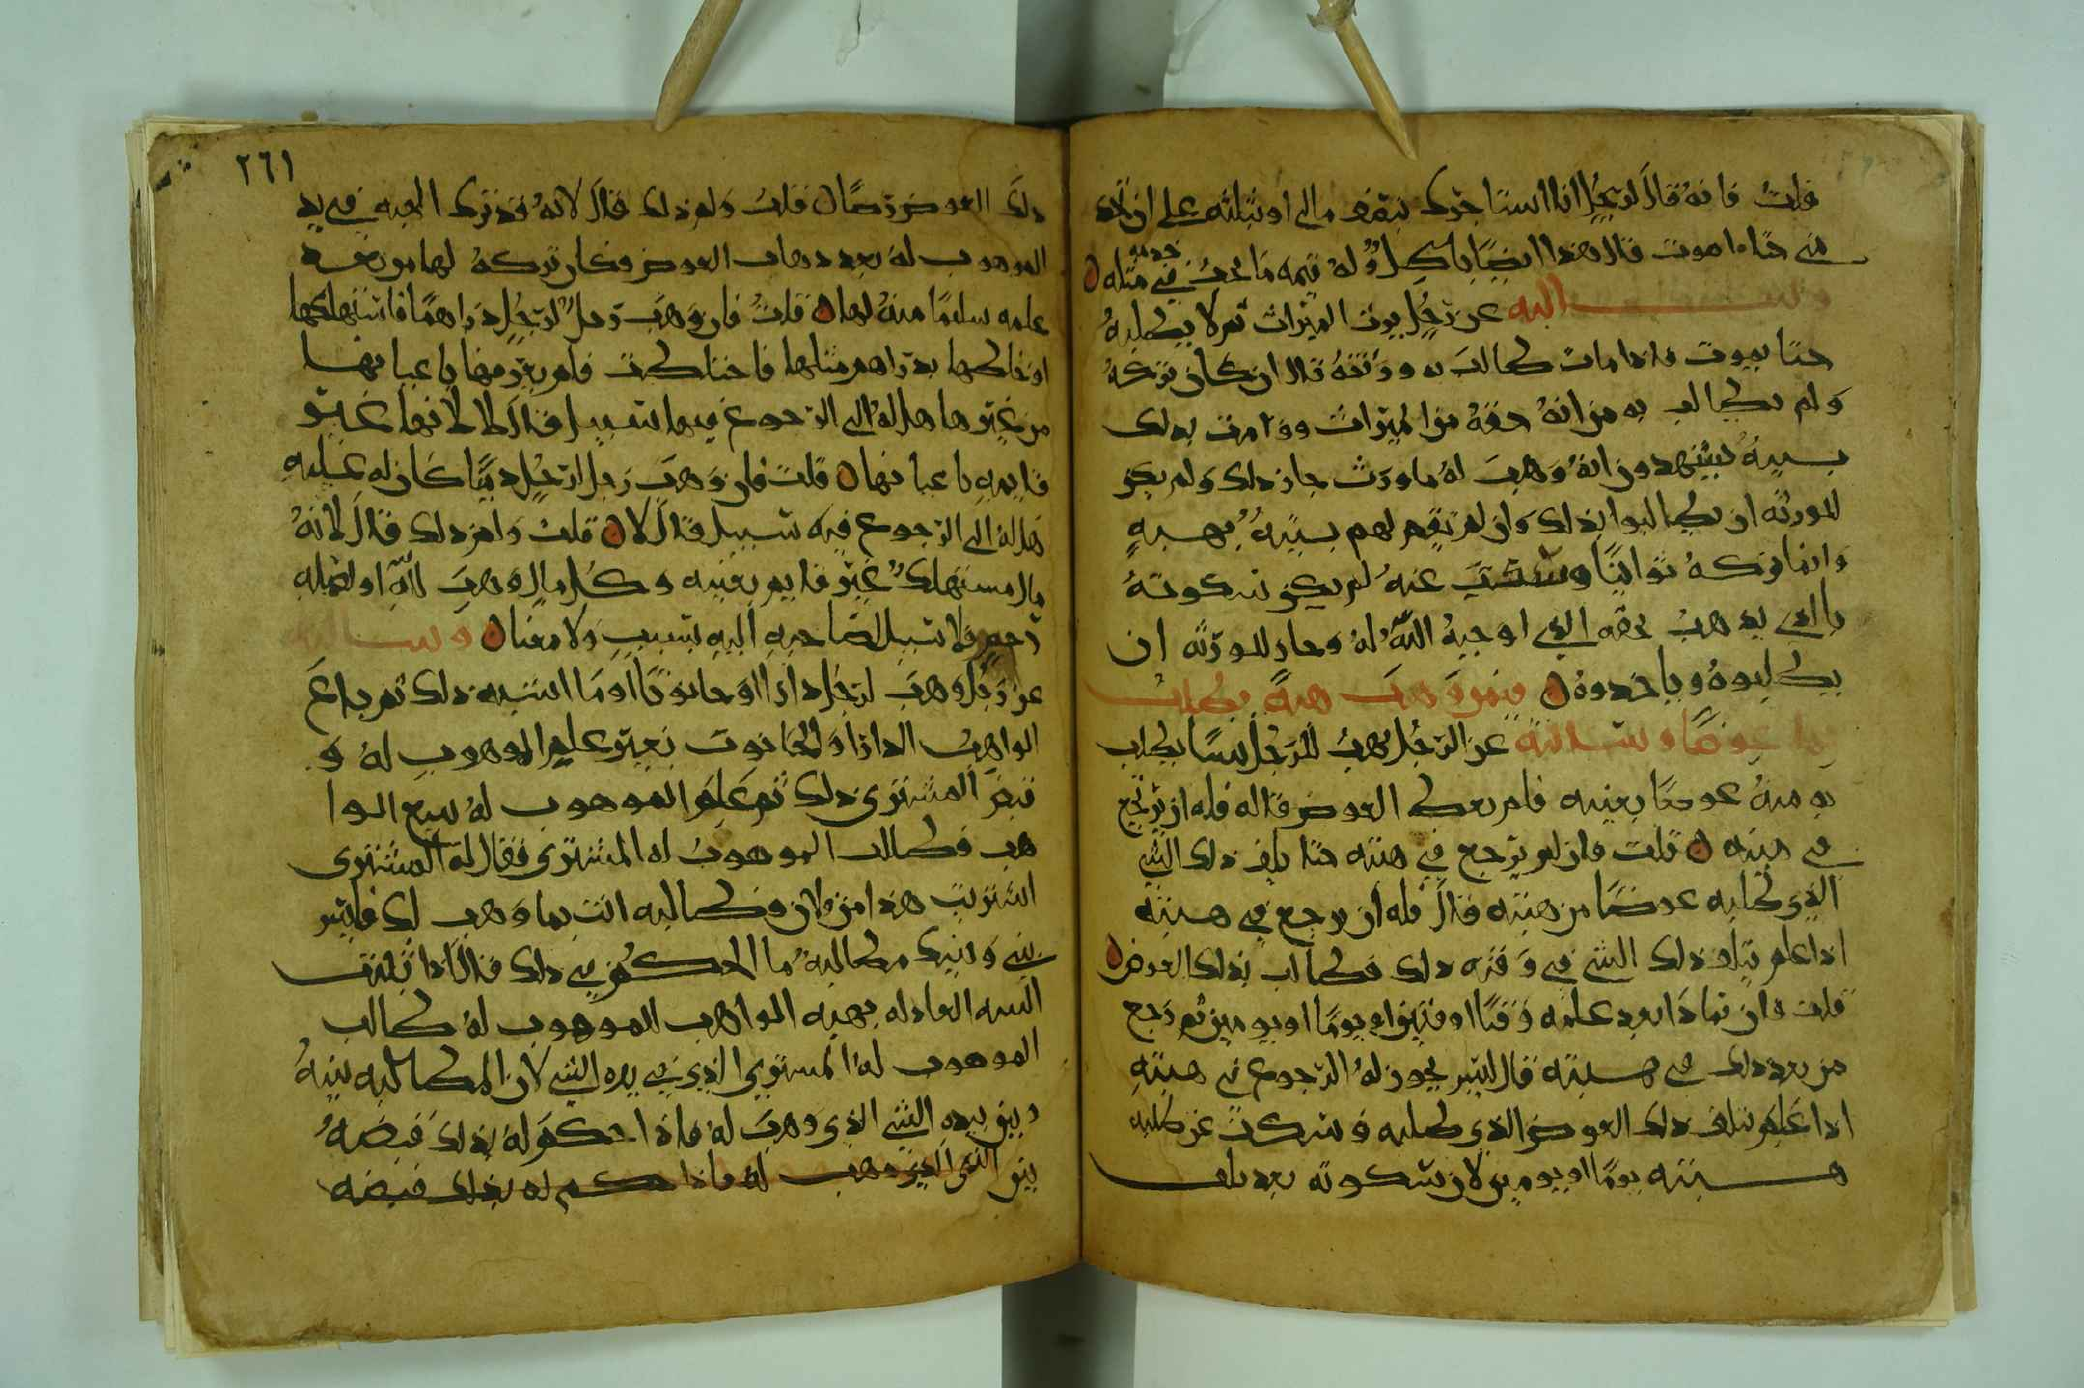 قلت فانه قال لرجل انا استاجرك بنصف مالي او ثلثه على ان
حتا اموت قال هذا ايضا باطل وله قيمه ما يجب في خدمه مثله
وسالته عن رجل يرث الميراث ثم لا يطلبه
حتا يموت فاذا مات طالب به ورثته قال ان كان تركه
ولم يطالب به من انه حقه من الميراث وقامت بذلك
بينه يشهدون انه وهب له ما ورث جاز ذلك ولم يكن
للورثه ان يطالبوا بذلك وان لم تقم لهم بينه بهبه
وانما تركه توانيا وسكت عنه لم يكن سكوته
بالذي يذهب بحقه الذي اوجبه الله له وجاز للورثه ان
يطلبوه وياخذوه فيمن وهب هبه يطلب
بها عوضا وسالته عن الرجل يهب للرجل شيا يطلب
به منه عوضا بعينه فلم يعط العوض قال له فله ان يرجع
في هبته قلت فان لم يرجع في هبته حتا تلف ذلك الشي
الذي طلبه عوضا من هبته قال فله ان يرجع في هبته
اذا علم تلف ذلك الشي في وقته ذلك فطالب بذلك العوض
قلت فان تمادا بعد علمه وقتا او وقتين او يوما او يومين ثم رجع
من بعد ذلك في هبته قال ليس يجوز له الرجوع في هبته
اذا علم تلف ذلك العوض الذي طلبه وسكت عن طلبه
هبته يوما او يومين لان سكوته بعد تلف
٢٦١
ذلك العوض رضا قلت ولم ذلك قال لانه قد ترك الهبه في يد
الموهوب له بعد ذهاب العوض فكان تركه لها من بعد
علمه سلما منه لها قلت فان وهب رجل لرجل دراهما فاستهلكها
او خلطها بدراهم مثلها فاختلطت فلم يعرفها باعيانها
من غيرها هل له الى الرجوع فيها سبيل قال لا لانها غير
قايمه باعيانها قلت فان وهب رجل لرجل دينا كان له عليه
هل له الى الرجوع فيه سبيل قال لا قلت ولم ذلك قال لانه
مال مستهلك غير قايم بعينه وكل مال وهب لله او لصله
رحم فلا سبيل لصاحبه اليه بسبب ولا معنا وسالته
عن رجل وهب لرجل دارا او حانوتا او ما اشبه ذلك ثم باع
الواهب الدار او الحانوت بغير علم الموهوب له و
قبض المشتري ذلك ثم علم الموهوب له ببيع الوا
هب فطالب الموهوب له المشتري فقال له المشتري
اشتريت هذا من فلان فطالبه انت بما وهب لك فليس
بيني وبينك مطالبه ما الحكم في ذلك قال اذا ثبتت
البينه العادله بهبه الواهب للموهوب له طالب
الموهوب له المشتري الذي في يده الشي لان المطالبه بينه
وبين بيده الشي الذي وهب له فاذا حكم له بذلك قبضه
بين الشي الذي وهب له فاذا حكم له بذلك قبضه